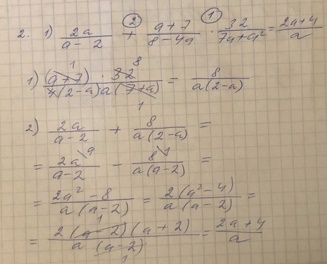 2. 1) 2a/(a-2) + (a+7)/(8-4a) · 32/(7a+a²) = (2a+4)/a
② ①
1) (a+7) · 32 / 4(2-a)a(7+a) = 8/a(2-a)
1 8
1
2) 2a/(a-2) + 8/a(2-a) =
= 2a\a/(a-2) - 8\1/a(a-2) =
= (2a²-8)/a(a-2) = 2(a²-4)/a(a-2) =
= 2(a-2)(a+2)/a(a-2) = (2a+4)/a
1
1